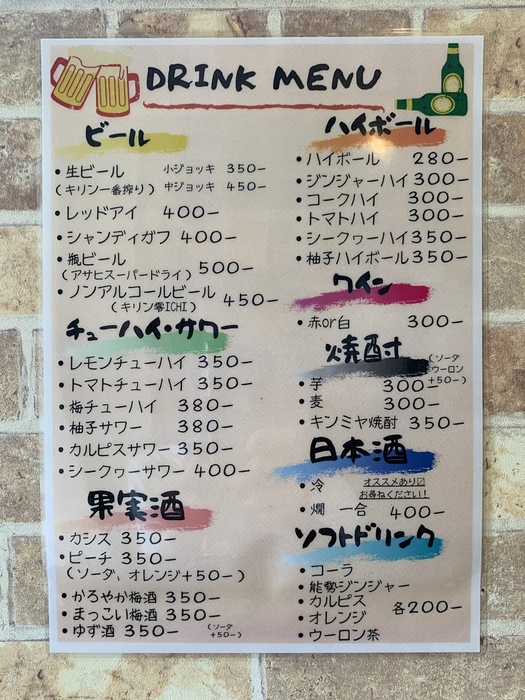 DRINK MENU
ビール
・生ビール 小ジョッキ 350−
(キリン一番搾り) 中ジョッキ 450−
・レッドアイ 400−
・シャンディガフ 400−
・瓶ビール
(アサヒスーパードライ) 500−
・ノンアルコールビール 450−
(キリン零ICHI)
チューハイ・サワー
・レモンチューハイ 350−
・トマトチューハイ 350−
・梅チューハイ 380−
・柚子サワー 380−
・カルピスサワー 350−
・シークヮーサワー 400−
果実酒
・カシス 350−
・ピーチ 350−
(ソーダ、オレンジ+50−)
・かろやか梅酒 350−
・まっこい梅酒 350−
・ゆず酒 350− (ソーダ
+50−)
ハイボール
・ハイボール 280−
・ジンジャーハイ 300−
・コークハイ 300−
・トマトハイ 300−
・シークヮーハイ 350−
・柚子ハイボール 350−
ワイン
・赤or白 300−
焼酎 (ソーダ
ウーロン
+50−)
・芋 300−
・麦 300−
・キンミヤ焼酎 350−
日本酒
・冷 オススメあり〼
お尋ねください!
・燗 一合 400−
ソフトドリンク
・コーラ
・能勢ジンジャー
・カルピス 各200−
・オレンジ
・ウーロン茶